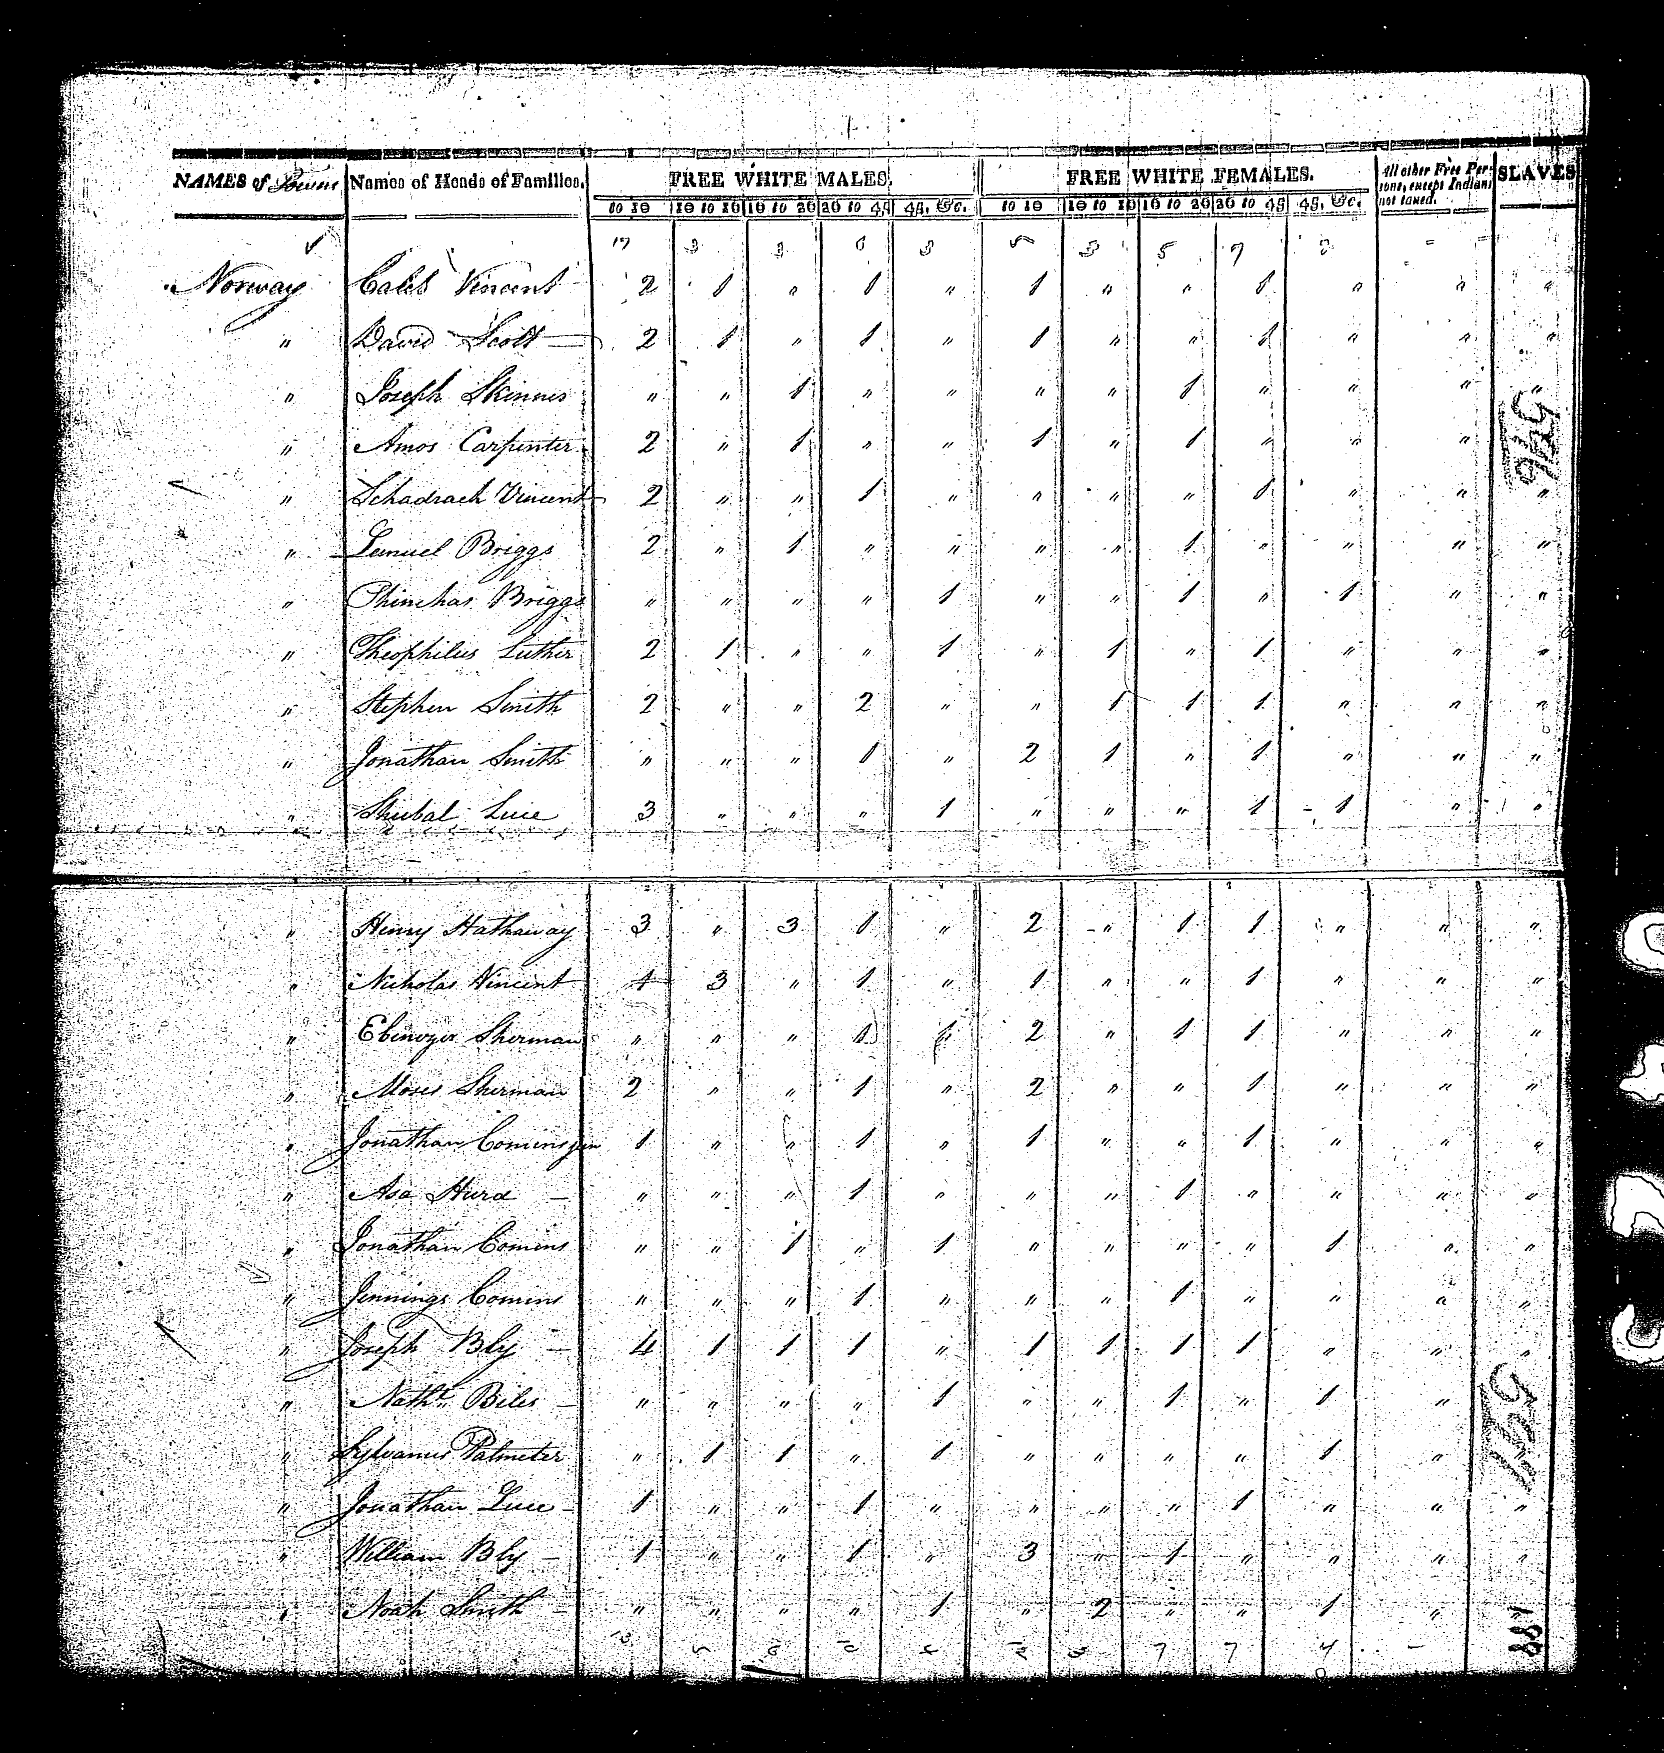 NAMES of Towns Names of Heads of Families. FREE WHITE MALES. FREE WHITE FEMALES. All other Free Persons, except Indians not taxed. SLAVES
to 10 10 to 16 16 to 26 26 to 45 45, &c. to 10 10 to 16 16 to 26 26 to 45 45, &c.
17 3 3 6 3 5 3 5 7 3 - -
Norway Caleb Vincent 2 1 " 1 " 1 " " 1 " " "
" David Scott 2 1 " 1 " 1 " " 1 " " "
" Joseph Skinner " " 1 " " " " 1 " " " "
" Amos Carpenter 2 " 1 " " 1 " 1 " " "
" Schadrach Vincent 2 " " 1 " " " " 1 " " "
" Lemuel Briggs 2 " 1 " " " " 1 " " " "
" Phinehas Briggs " " " " 1 " " 1 " 1 " "
" Theophilus Luther 2 1 " " 1 " 1 " 1 " " "
" Stephen Smith 2 " " 2 " " 1 1 1 " " "
" Jonathan Smith " " " 1 " 2 1 " 1 " " "
" Shubal Luce 3 " " " 1 " " " 1 1 " "
" Henry Hathaway 3 " 3 1 " 2 " 1 1 " " "
" Nicholas Vincent 4 3 " 1 " 1 " " 1 " " "
" Ebenezer Sherman " " " 1 2 " 1 1 " " "
" Moses Sherman 2 " " 1 " 2 " " 1 " " "
" Jonathan Comins jun 1 " " 1 " 1 " " 1 " " "
" Asa Hurd " " " 1 " " " 1 " " " "
" Jonathan Comins " " 1 " 1 " " " " 1 " "
" Jennings Comins " " " 1 " " " 1 " " " "
" Joseph Bly 4 1 1 1 " 1 1 1 1 " " "
" Nathl. Biles " " " " 1 " " 1 " 1 "
" Sylvanus Palmeter " 1 1 " 1 " " " " 1 "
" Jonathan Luce 1 " " 1 " " " " 1 " " "
" William Bly 1 " " 1 " 3 " 1 " " " "
" Noah Smith " " " " 1 " 2 " " 1 " "
5 6 7 7 4 -
546
547
881